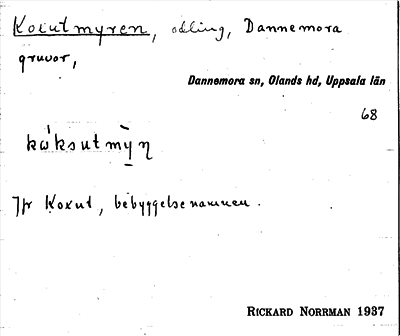 Koxutmyren, odling, Dannemora
gruvor,
Dannemora sn, Olands hd, Uppsala län
68
kὼksutmỳ̠n
Jfr Koxut, bebyggelsenamnen.
RICKARD NORRMAN 1937